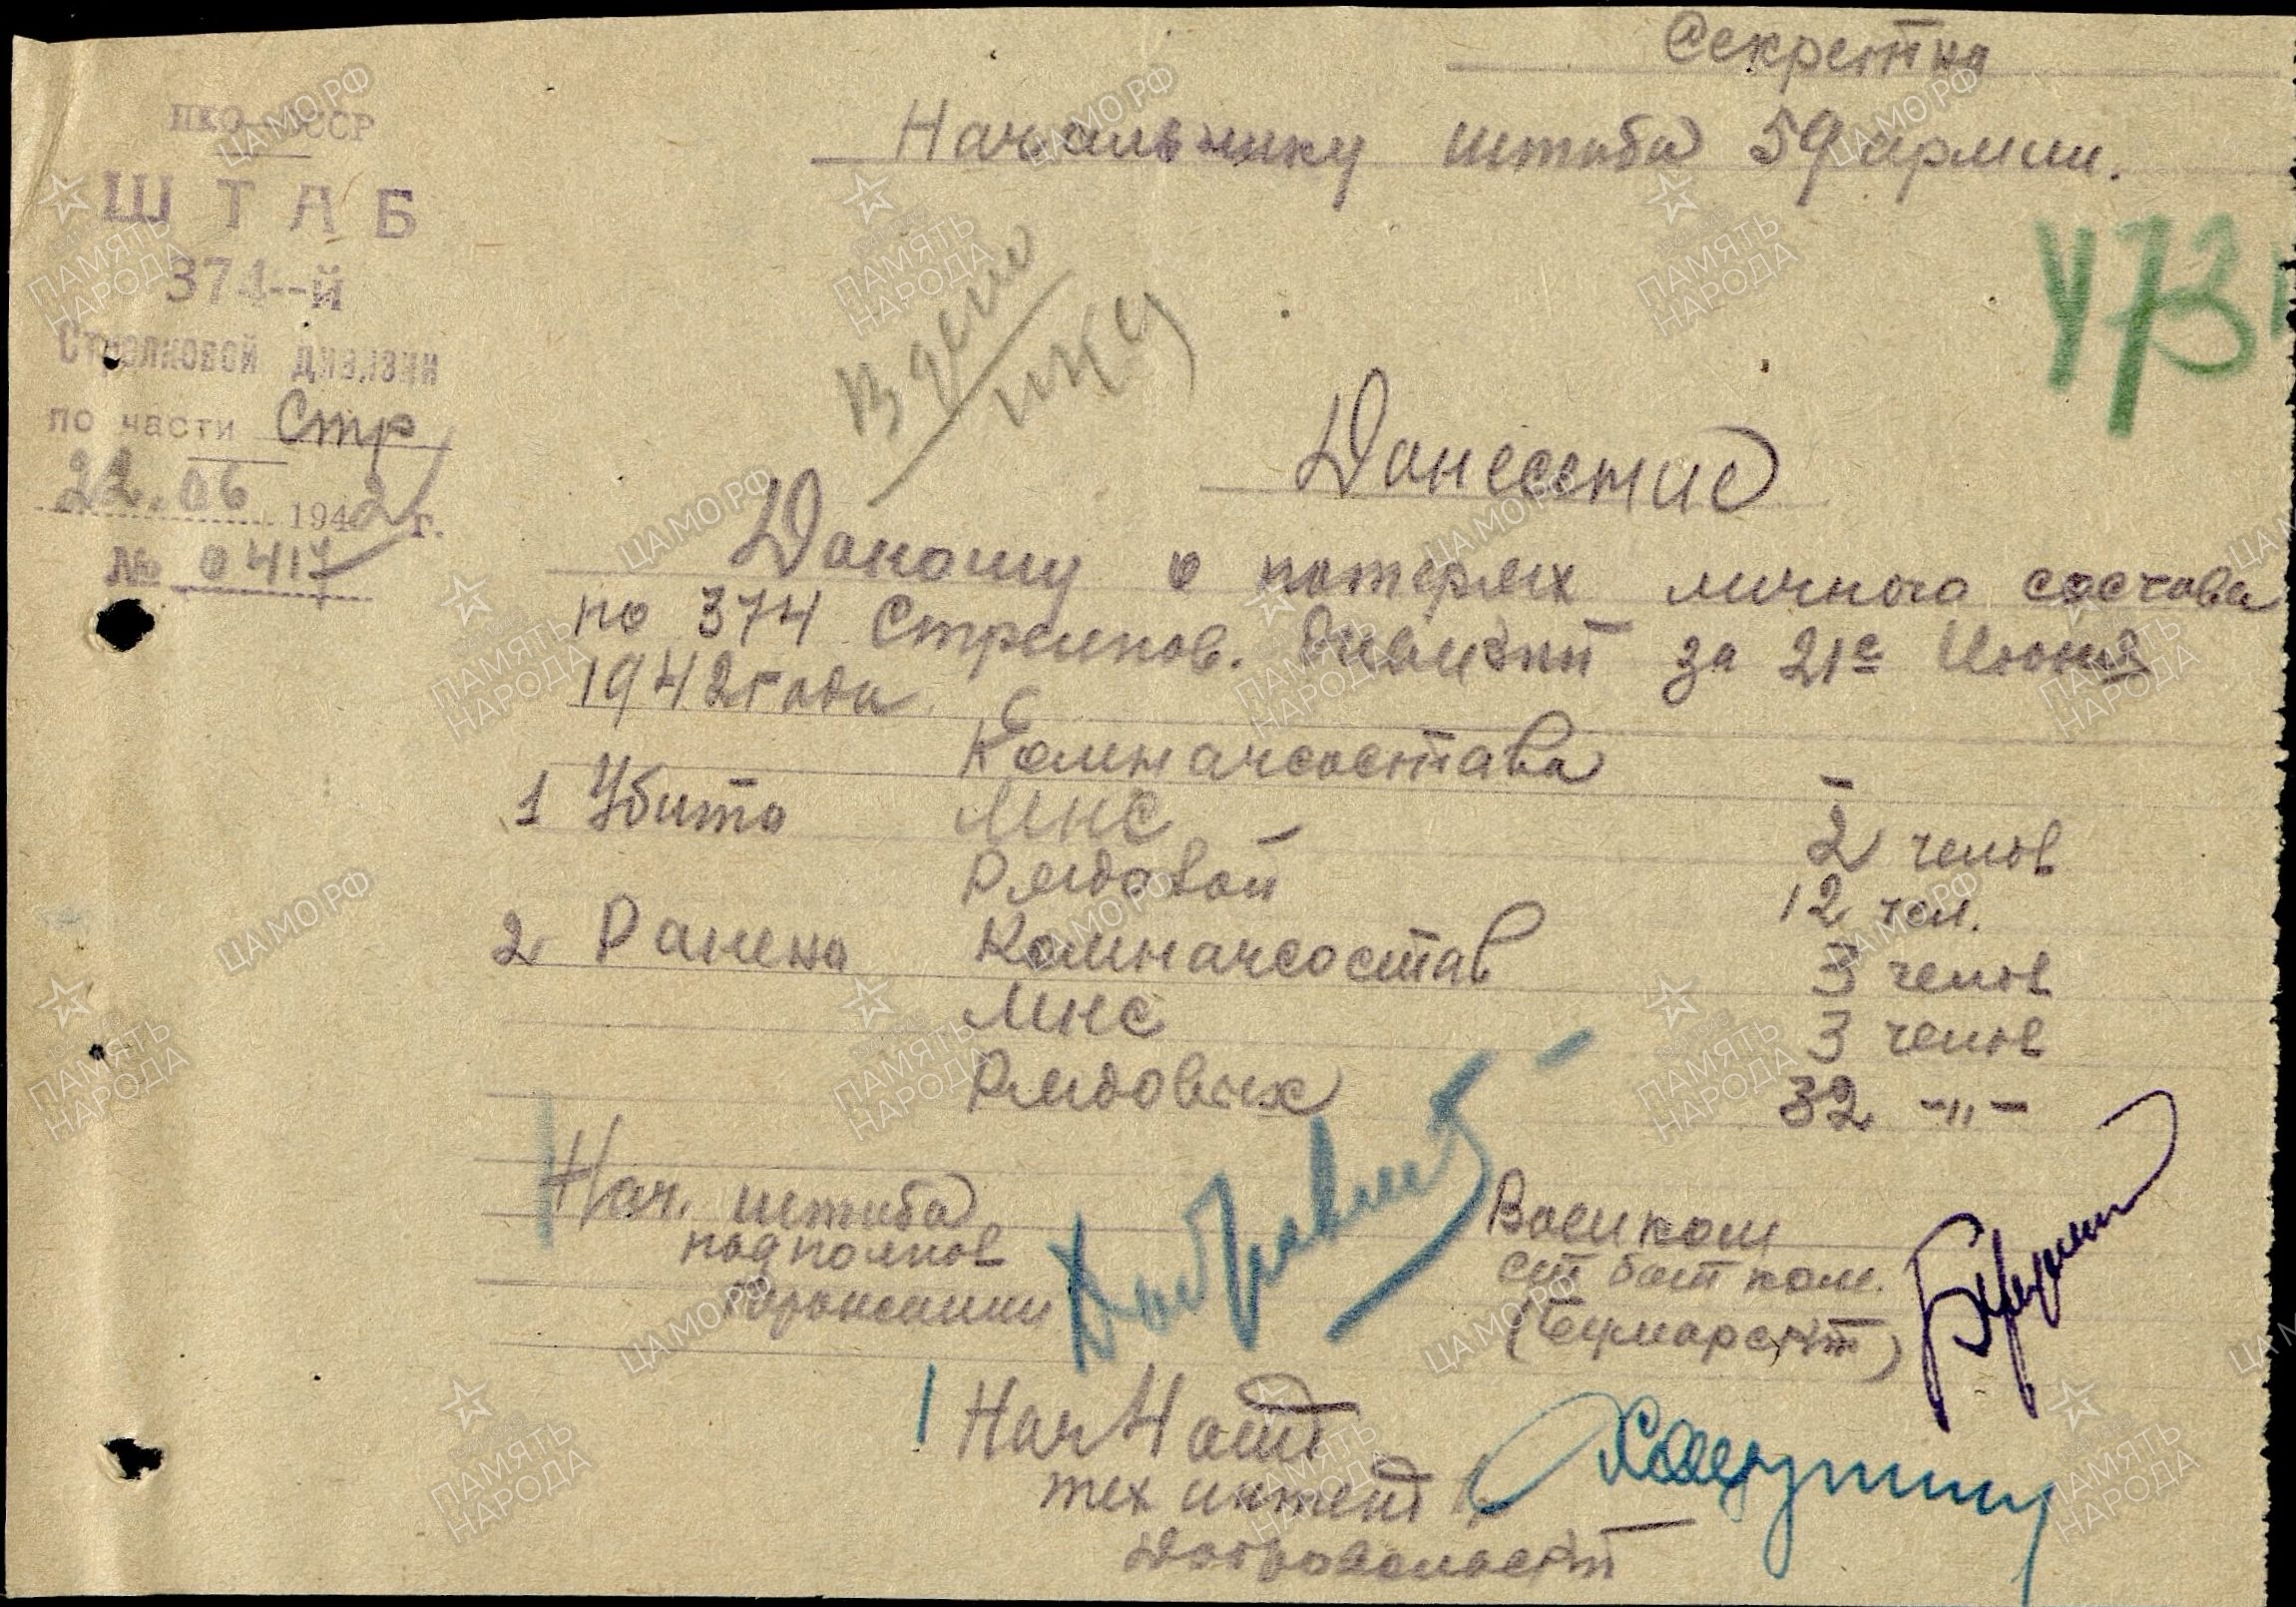 Секретно
Начальнику штаба 59 армии.
НКО СССР
ШТАБ
374-й
Стрелковой дивизии
по части Стр
22.06 1942 г.
№ 0417
В дело
473
Донесение
Доношу о потерях личного состава
по 374 Стрелков. дивизии за 21е Июня
1942 года.
Комначсостава -
1 Убито МНС 2 челов
Рядовой 12 чел.
2 Ранено Комначсостав 3 челов
МНС 3 челов
Рядовых 32 -"-
Нач. штаба
подполков
Военком
ст бат ком.
Нач 4 отд
тех интент
Добровольский
ЦАМО РФ
ПАМЯТЬ
НАРОДА